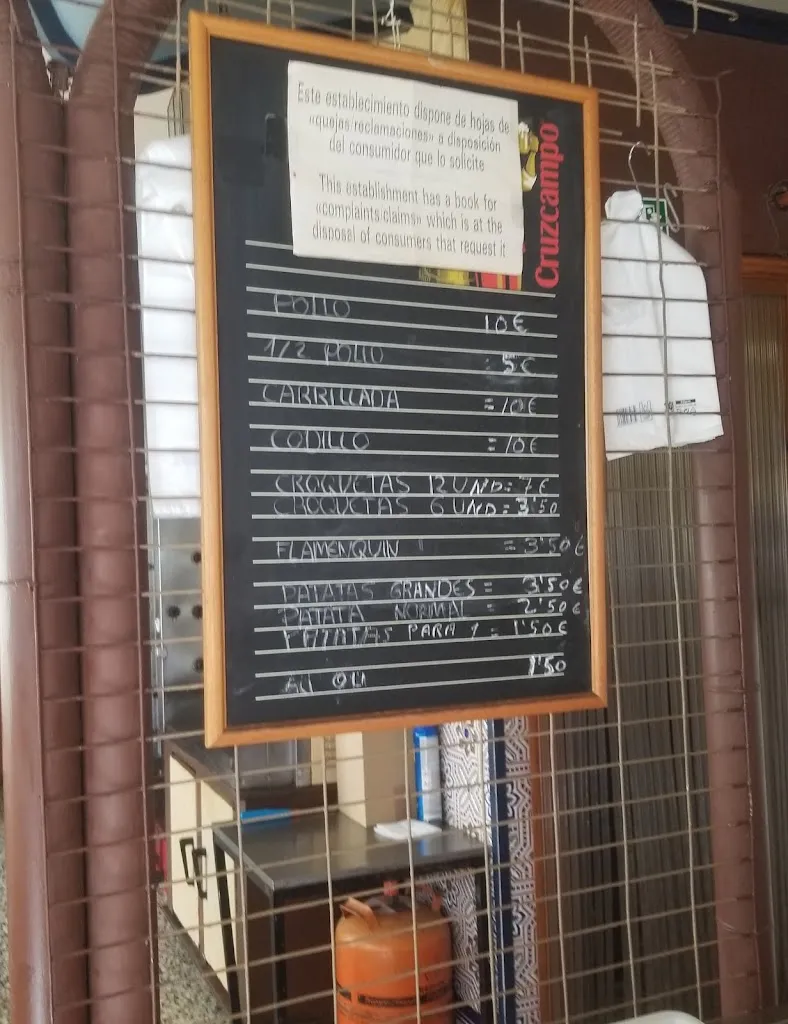 Este establecimiento dispone de hojas de
«quejas/reclamaciones» a disposición
del consumidor que lo solicite
This establishment has a book for
«complaints/claims» which is at the
disposal of consumers that request it
Cruzcampo
POLLO 10€
1/2 POLLO : 5€
CARRILLADA = 10€
CODILLO = 10€
CROQUETAS 12 UND = 7€
CROQUETAS 6 UND = 3'50
FLAMENQUIN = 3'50€
PATATAS GRANDES = 3'50€
PATATA NORMAL = 2'50€
PATATAS PARA 1 = 1'50€
1'50